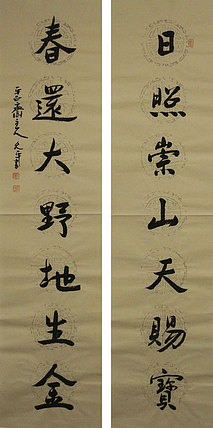 日照崇山天賜寶
春還大野地生金